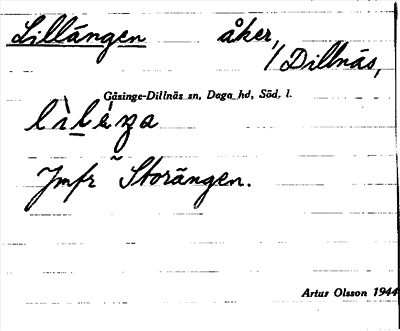 Lillängen åker,
/ Dillnäs,
Gåsinge-Dillnäs sn, Daga hd, Söd. l.
Jmfr Storängen.
Artur Olsson 1944